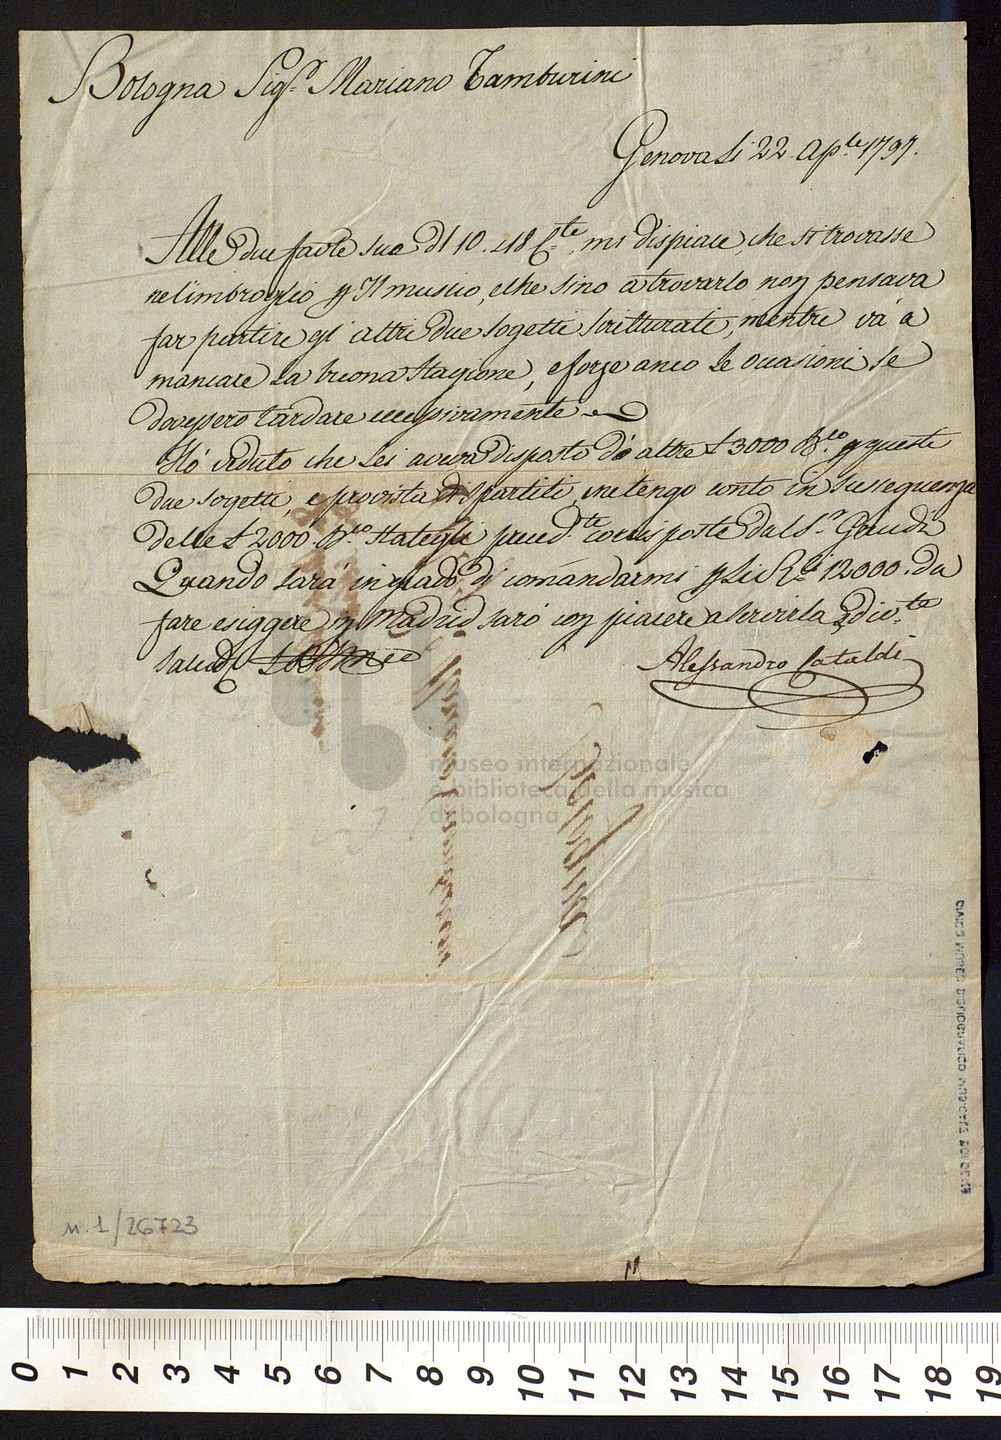 Bologna Sig.r Mariano Tamburini
Genova li 22. Ap.le 1797.
Alle due favte sue dl 10. e 18 C.te, mi dispiace, che si trovasse
nel imbroglio p Il musico, e che sino a trovarlo non pensava
far partire gl' altri due sogetti scritturati, mentre và a
mancare la buona stagione, e forze anco le occasioni se
dovessero tardare eccessivamente
Hó veduto che Lei aveva disposto d' altre £ 3000 B.co p questi
due sogetti, e provista di spartiti, ne tengo conto in sussequenza
delle £ 2000. B.co preced.te corrisposte dal S.r Gaudi
Quando sarà in grado di comandarmi p li R.li 12000. da
fare esiggere in Madrid saró con piacere a servirla
Alessandro Cataldi
museo internazionale
e biblioteca della musica
di bologna
n. 1/26723
0 1 2 3 4 5 6 7 8 9 10 11 12 13 14 15 16 17 18 19